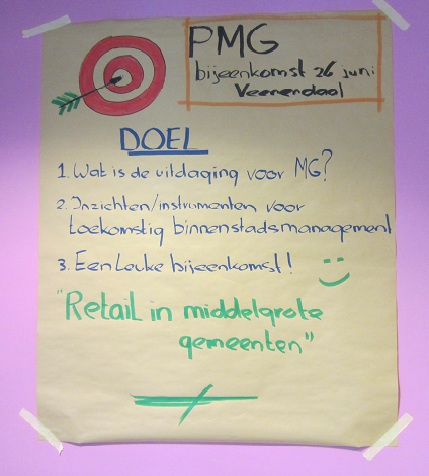 PMG
bijeenkomst 26 juni
Veenendaal
DOEL
1. Wat is de uitdaging voor MG?
2. Inzichten/instrumenten voor
toekomstig binnenstadsmanagement
3. Een leuke bijeenkomst!
"Retail in middelgrote
gemeenten"